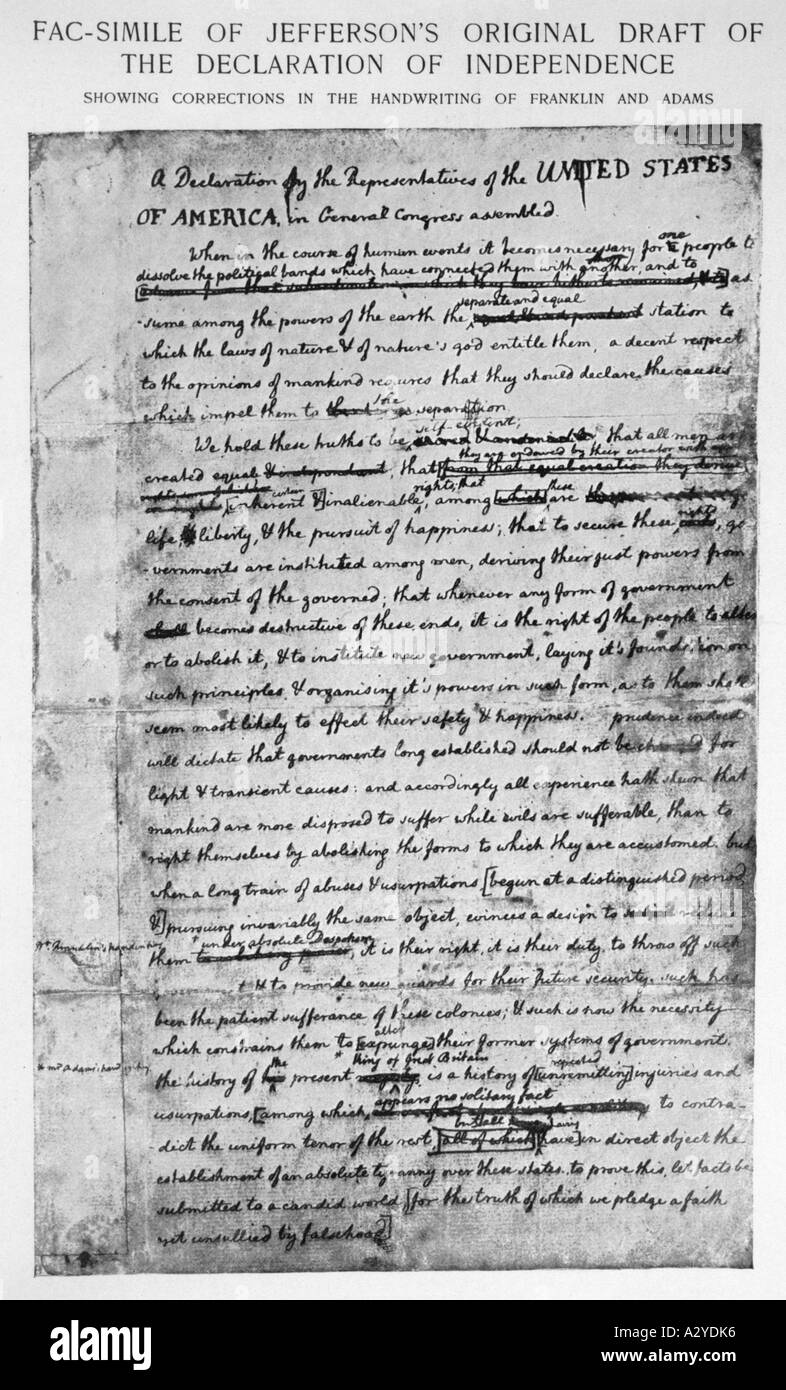 FAC-SIMILE OF JEFFERSON'S ORIGINAL DRAFT OF
THE DECLARATION OF INDEPENDENCE
SHOWING CORRECTIONS IN THE HANDWRITING OF FRANKLIN AND ADAMS
A Declaration by the Representatives of the UNITED STATES
OF AMERICA, in General Congress assembled.
When in the course of human events it becomes necessary for one people to
dissolve the political bands which have connected them with another, and to
as
separate and equal
-sume among the powers of the earth the station to
which the laws of nature & of nature's god entitle them, a decent respect
to the opinions of mankind requires that they should declare the causes
which impel them to the separation
self-evident;
We hold these truths to be sacred & undeniable that all men are
they are endowed by their creator with
created equal & independant, that from that equal creation they derive
rights; that these
[inherent &] inalienable, among which are
rights
life liberty, & the pursuit of happiness; that to secure these ends, go
-vernments are instituted among men, deriving their just powers from
the consent of the governed; that whenever any form of government
shall becomes destructive of these ends, it is the right of the people to alter
or to abolish it, & to institute new government, laying it's foundation on
such principles & organising it's powers in such form, as to them shall
seem most likely to effect their safety & happiness. prudence indeed
will dictate that governments long established should not be changed for
light & transient causes: and accordingly all experience hath shewn that
mankind are more disposed to suffer while evils are sufferable, than to
right themselves by abolishing the forms to which they are accustomed. but
when a long train of abuses & usurpations [begun at a distinguished period
&] pursuing invariably the same object, evinces a design to reduce
Dr Franklin's handwriting
* under absolute Despotism
them , it is their right, it is their duty, to throw off such
& to provide new guards for their future security. such has
been the patient sufferance of these colonies; & such is now the necessity
alter
which constrains them to [expunge] their former systems of government.
the * King of Great Britain repeated
* mr Adams' handwriting
the history of his present is a history of [unremitting] injuries and
appears no solitary fact
usurpations, [among which, to contra-
but all having
-dict the uniform tenor of the rest, [all of which] [have] in direct object the
establishment of an absolute tyranny over these states. to prove this, let facts be
submitted to a candid world, [for the truth of which we pledge a faith
yet unsullied by falsehood]
alamy
alamy
Image ID: A2YDK6
www.alamy.com